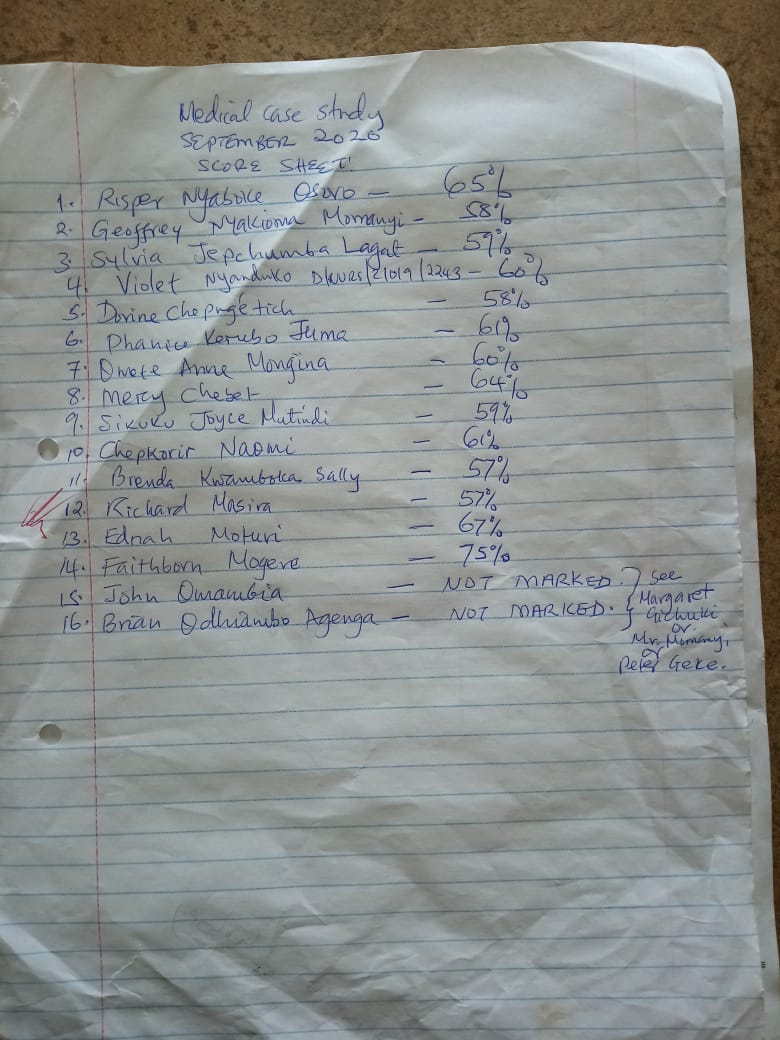 Medical case study
SEPTEMBER 2020
SCORE SHEET!
1. Risper Nyaboke Osoro — 65%
2. Geoffrey Nyakioma Momanyi - 58%
3. Sylvia Jepchumba Lagat — 59%
4. Violet Nyanduko D/NURS/21019/2243 - 60%
5. Dorine Chepngetich — 58%
6. Phanice Kerubo Juma — 61%
7. Omete Anne Mongina — 60%
8. Mercy Chebet — 64%
9. Sikuku Joyce Mutindi — 59%
10. Chepkorir Naomi — 61%
11. Brenda Kwamboka Sally — 57%
12. Richard Masira — 57%
13. Ednah Moturi — 67%
14. Faithborn Mogere — 75%
15. John Omambia — NOT MARKED.
16. Brian Odhiambo Agenga — NOT MARKED.
see
Margaret
Githuki
or
Mr. Momanyi
or
Peter Geke.